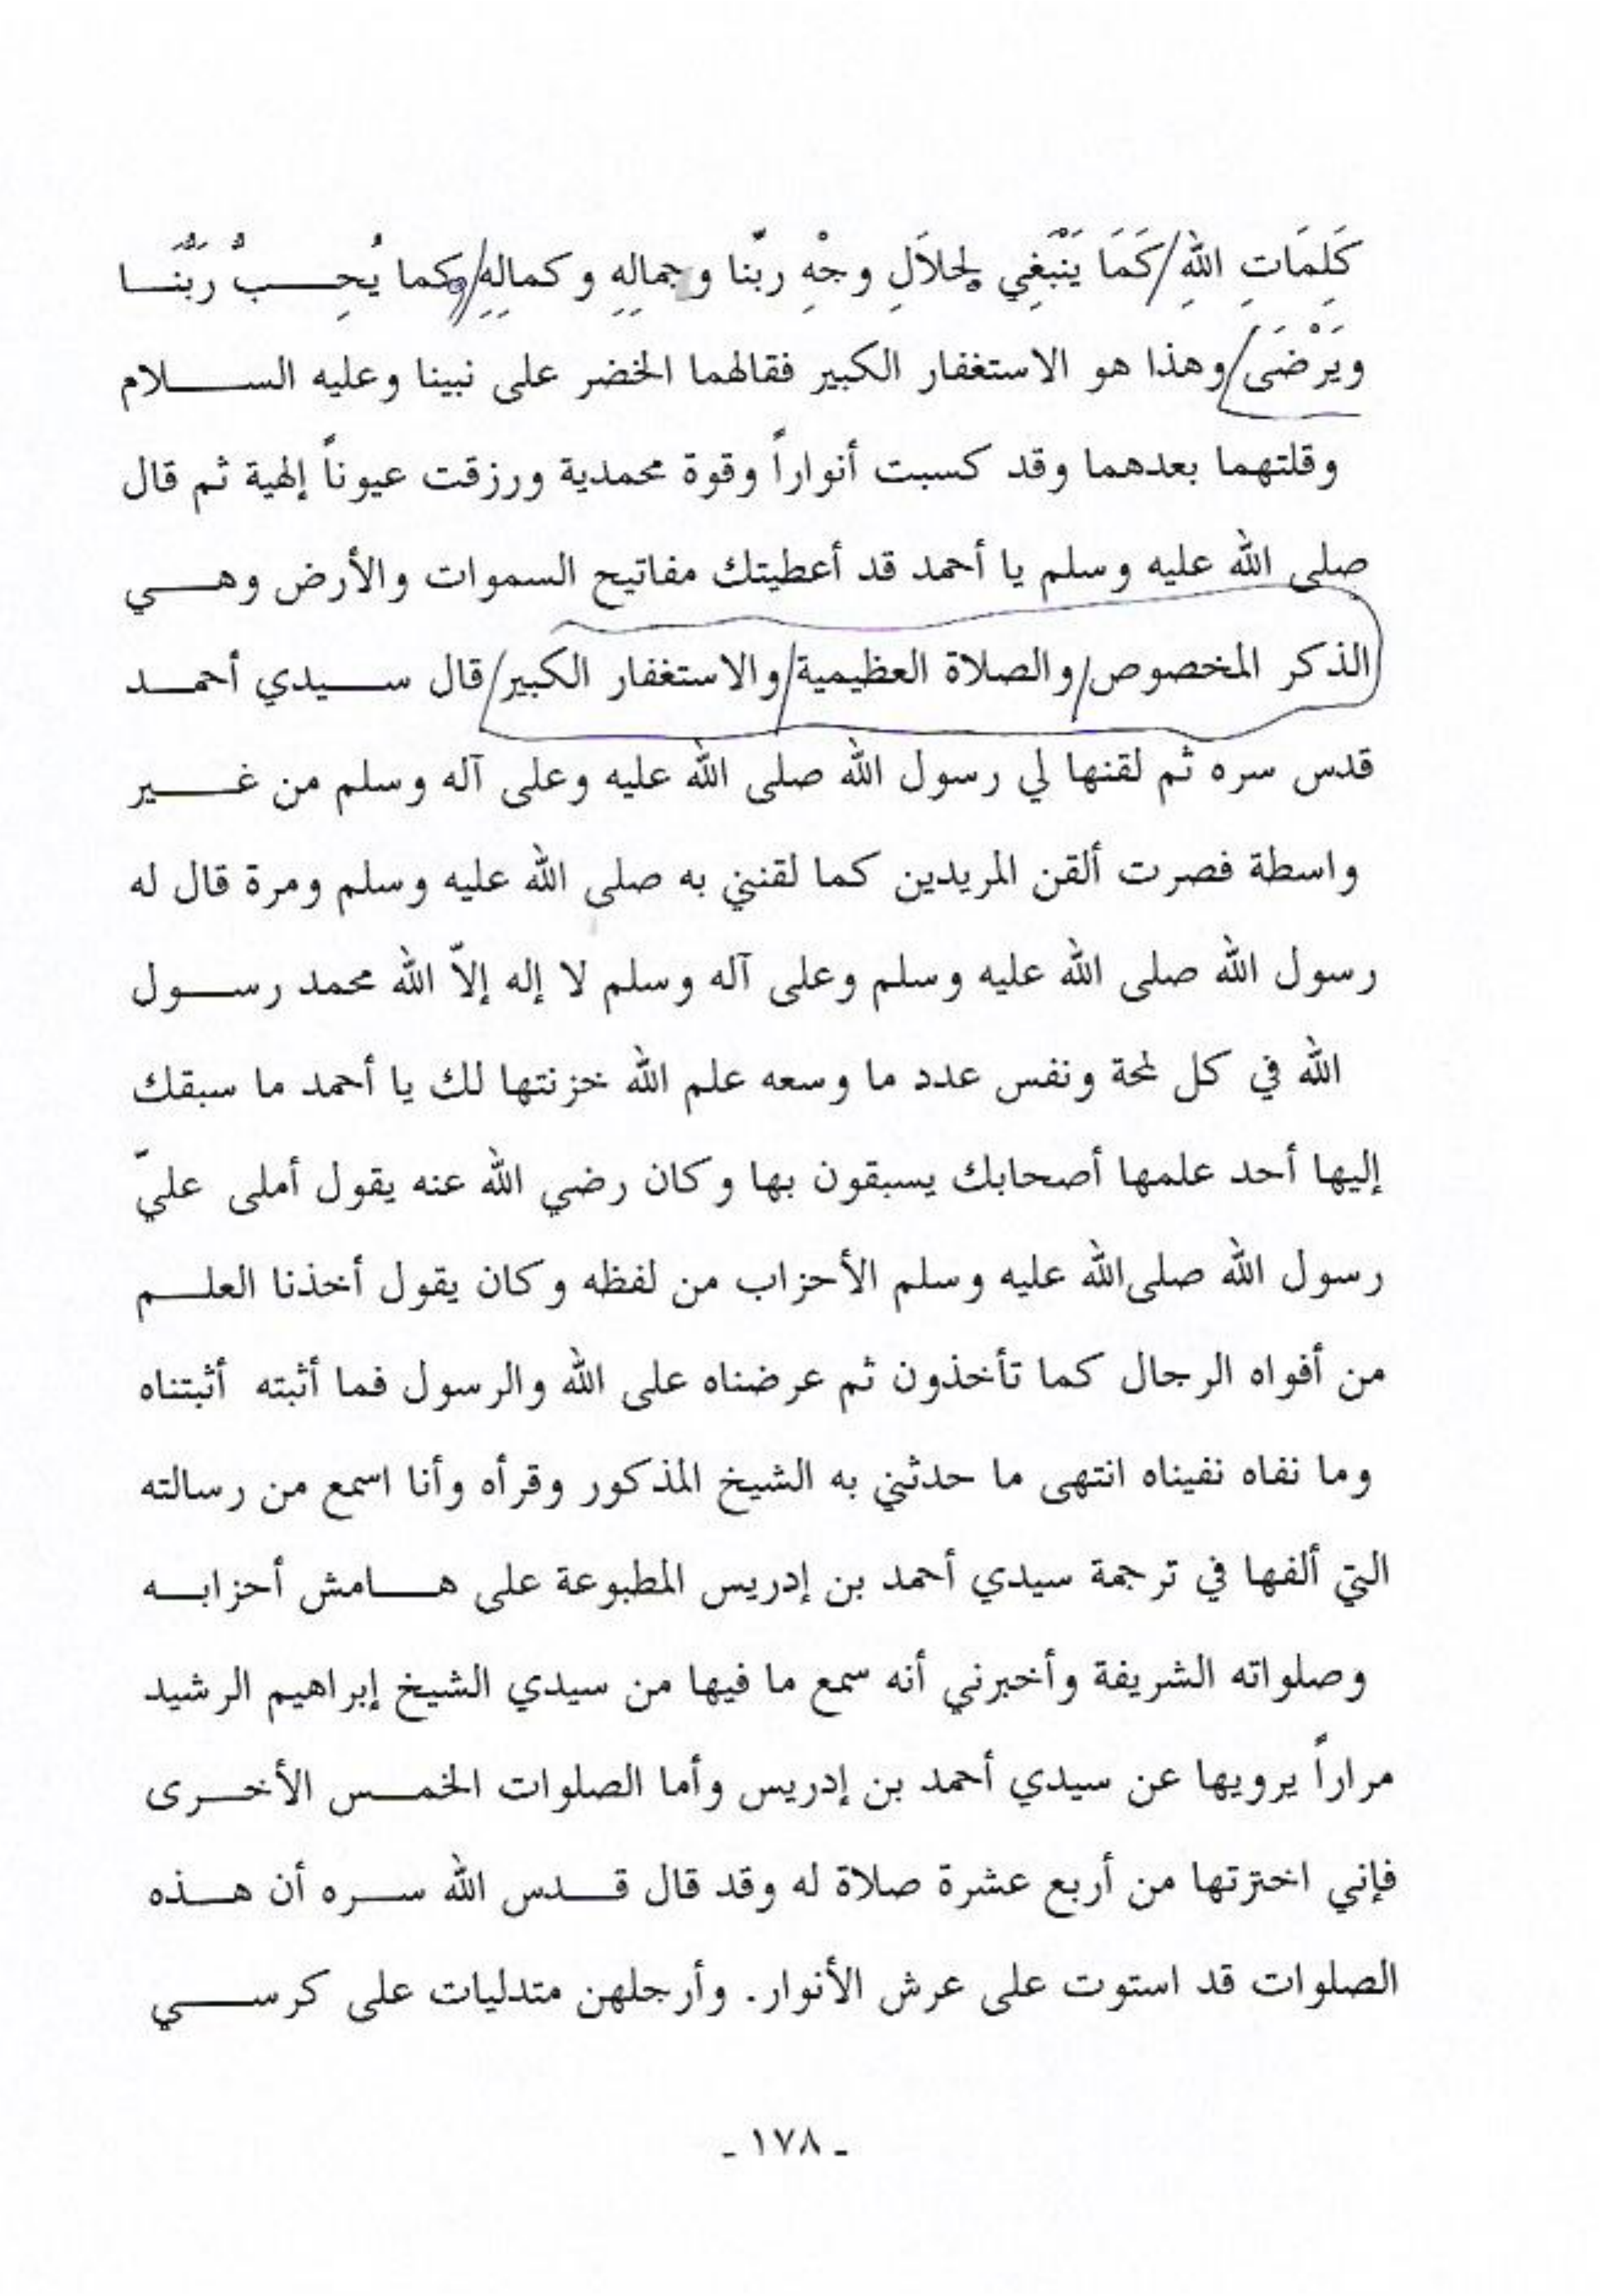 كَلِمَاتِ اللهِ/كَمَا يَنْبَغِي لِجلاَلِ وجْهِ ربّنا وجمالِهِ وكمالِهِ/وكما يُحِبُّ رَبُّنَا
ويَرْضَى/وهذا هو الاستغفار الكبير فقالهما الخضر على نبينا وعليه السلام
وقلتهما بعدهما وقد كسبت أنواراً وقوة محمدية ورزقت عيوناً إلهية ثم قال
صلى الله عليه وسلم يا أحمد قد أعطيتك مفاتيح السموات والأرض وهي
الذكر المخصوص/والصلاة العظيمية/والاستغفار الكبير/قال سيدي أحمد
قدس سره ثم لقنها لي رسول الله صلى الله عليه وعلى آله وسلم من غير
واسطة فصرت ألقن المريدين كما لقنني به صلى الله عليه وسلم ومرة قال له
رسول الله صلى الله عليه وسلم وعلى آله وسلم لا إله إلاّ الله محمد رسول
الله في كل لمحة ونفس عدد ما وسعه علم الله خزنتها لك يا أحمد ما سبقك
إليها أحد علمها أصحابك يسبقون بها وكان رضي الله عنه يقول أملى عليّ
رسول الله صلى الله عليه وسلم الأحزاب من لفظه وكان يقول أخذنا العلم
من أفواه الرجال كما تأخذون ثم عرضناه على الله والرسول فما أثبته أثبتناه
وما نفاه نفيناه انتهى ما حدثني به الشيخ المذكور وقرأه وأنا اسمع من رسالته
التي ألفها في ترجمة سيدي أحمد بن إدريس المطبوعة على هامش أحزابه
وصلواته الشريفة وأخبرني أنه سمع ما فيها من سيدي الشيخ إبراهيم الرشيد
مراراً يرويها عن سيدي أحمد بن إدريس وأما الصلوات الخمس الأخرى
فإني اخترتها من أربع عشرة صلاة له وقد قال قدس الله سره أن هذه
الصلوات قد استوت على عرش الأنوار. وأرجلهن متدليات على كرسي
- ١٧٨ -